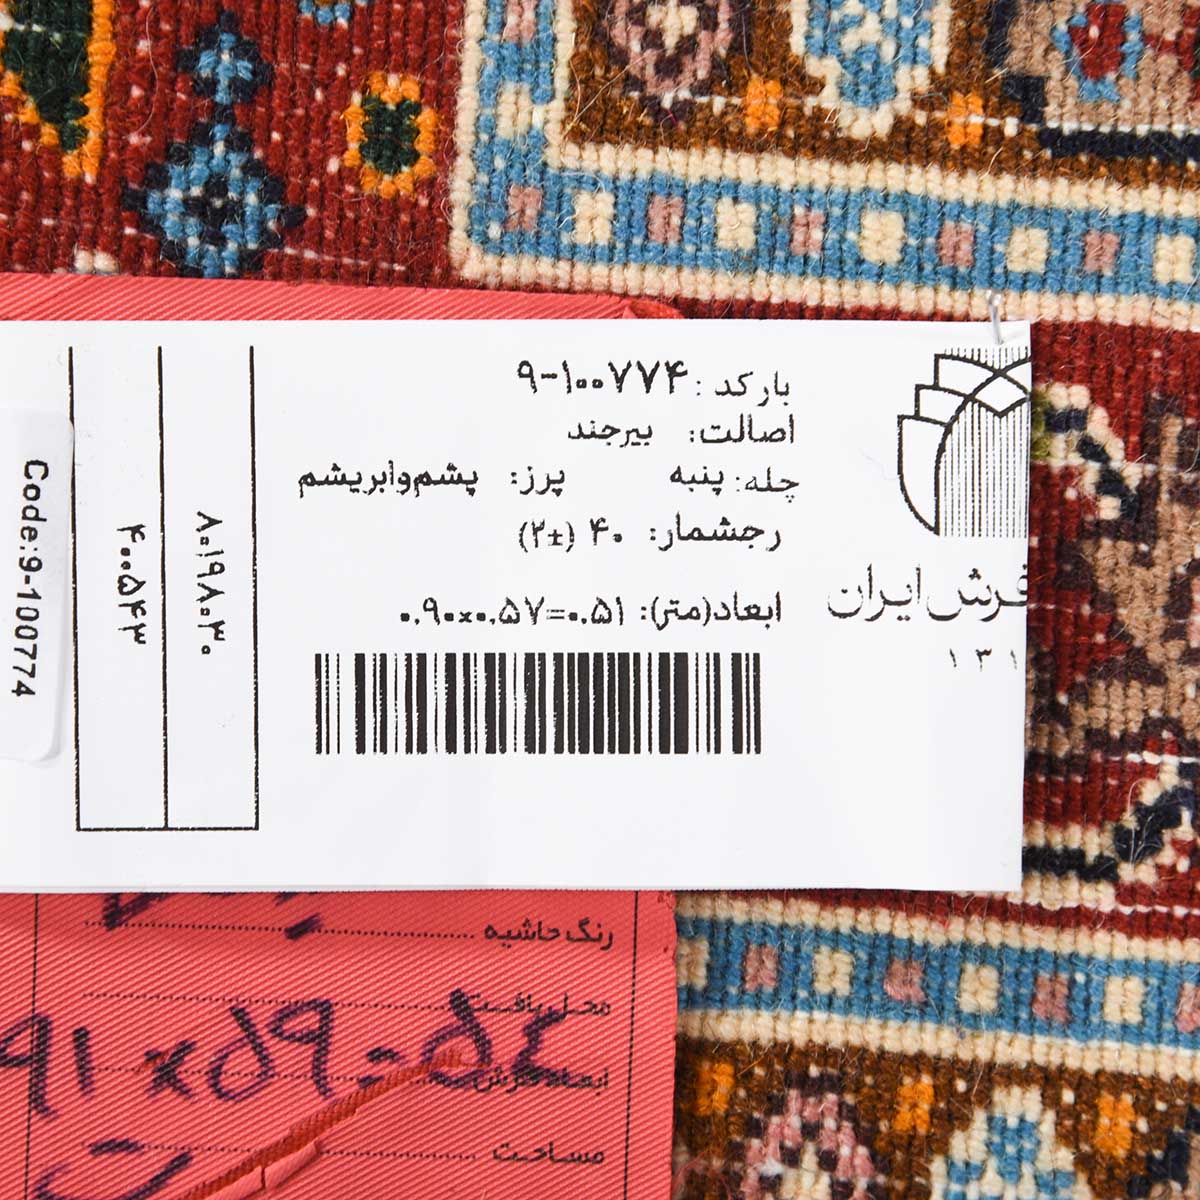 بارکد : ۹-۱۰۰۷۷۴
اصالت: بیرجند
چله: پنبه پرز: پشم‌وابریشم
رجشمار: ۴۰ (±۲)
ابعاد(متر): ۰.۹۰x۰.۵۷=۰.۵۱
فرش ایران
۱۳۱
۸۰۱۹۸۰۳۰
۴۰۰۵۴۳
Code:9-100774
رنگ حاشیه
محل بافت
ابعاد فرش
۹۱ x ۵۹ = ۵۴
مساحت